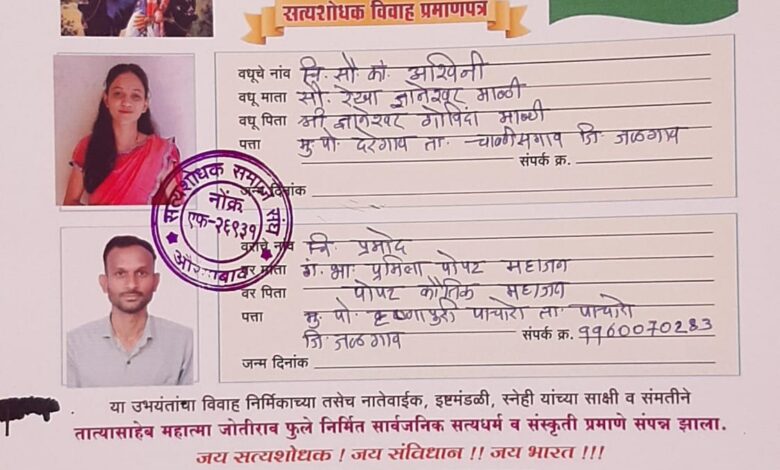 सत्यशोधक विवाह प्रमाणपत्र
वधूचे नांव चि. सौ. कां. अश्विनी
वधू माता सौ. रेखा ज्ञानेश्वर माळी
वधू पिता श्री ज्ञानेश्वर गोविंदा माळी
पत्ता मु. पो. दरेगाव ता. चाळीसगाव जि. जळगाव
संपर्क क्र.
जन्म दिनांक
सत्यशोधक समाज संघ
नोंक्र
एफ-२६९३१
औरंगाबाद
वराचे नांव चि. प्रमोद
वर माता गं. भा. प्रमिला पोपट महाजन
वर पिता पोपट कौतिक महाजन
पत्ता मु. पो. कृष्णापुरी पाचोरा ता. पाचोरा
जि. जळगाव संपर्क क्र. 9960070283
जन्म दिनांक
या उभयतांचा विवाह निर्मिकाच्या तसेच नातेवाईक, इष्टमंडळी, स्नेही यांच्या साक्षी व संमतीने
तात्यासाहेब महात्मा जोतीराव फुले निर्मित सार्वजनिक सत्यधर्म व संस्कृती प्रमाणे संपन्न झाला.
जय सत्यशोधक ! जय संविधान !! जय भारत !!!